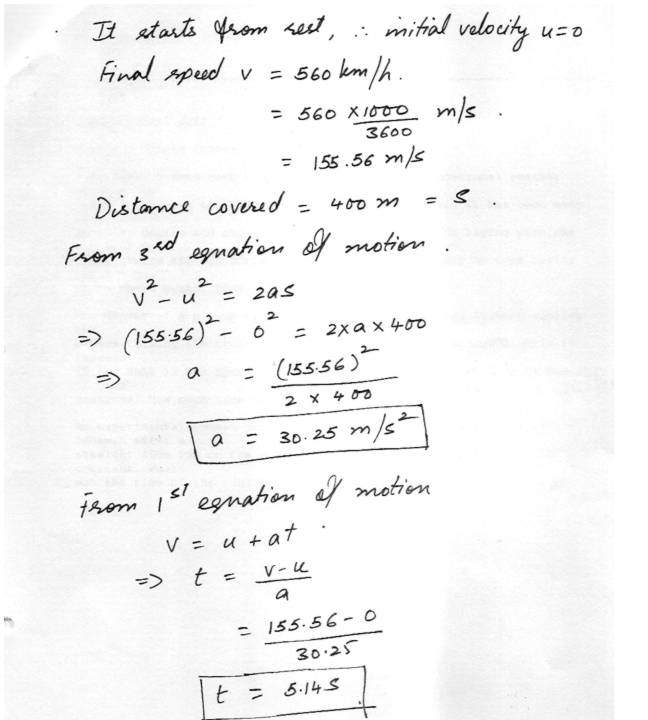 It starts from rest, ∴ initial velocity u=0
Final speed v = 560 km/h.
= 560 ×1000/3600 m/s.
= 155.56 m/s
Distance covered = 400 m = S.
From 3rd equation of motion.
v² - u² = 2as
=> (155.56)² - 0² = 2×a×400
=> a = (155.56)²/2 × 400
a = 30.25 m/s²
From 1st equation of motion
v = u + at.
=> t = v-u/a
= 155.56-0/30.25
t = 5.14 S